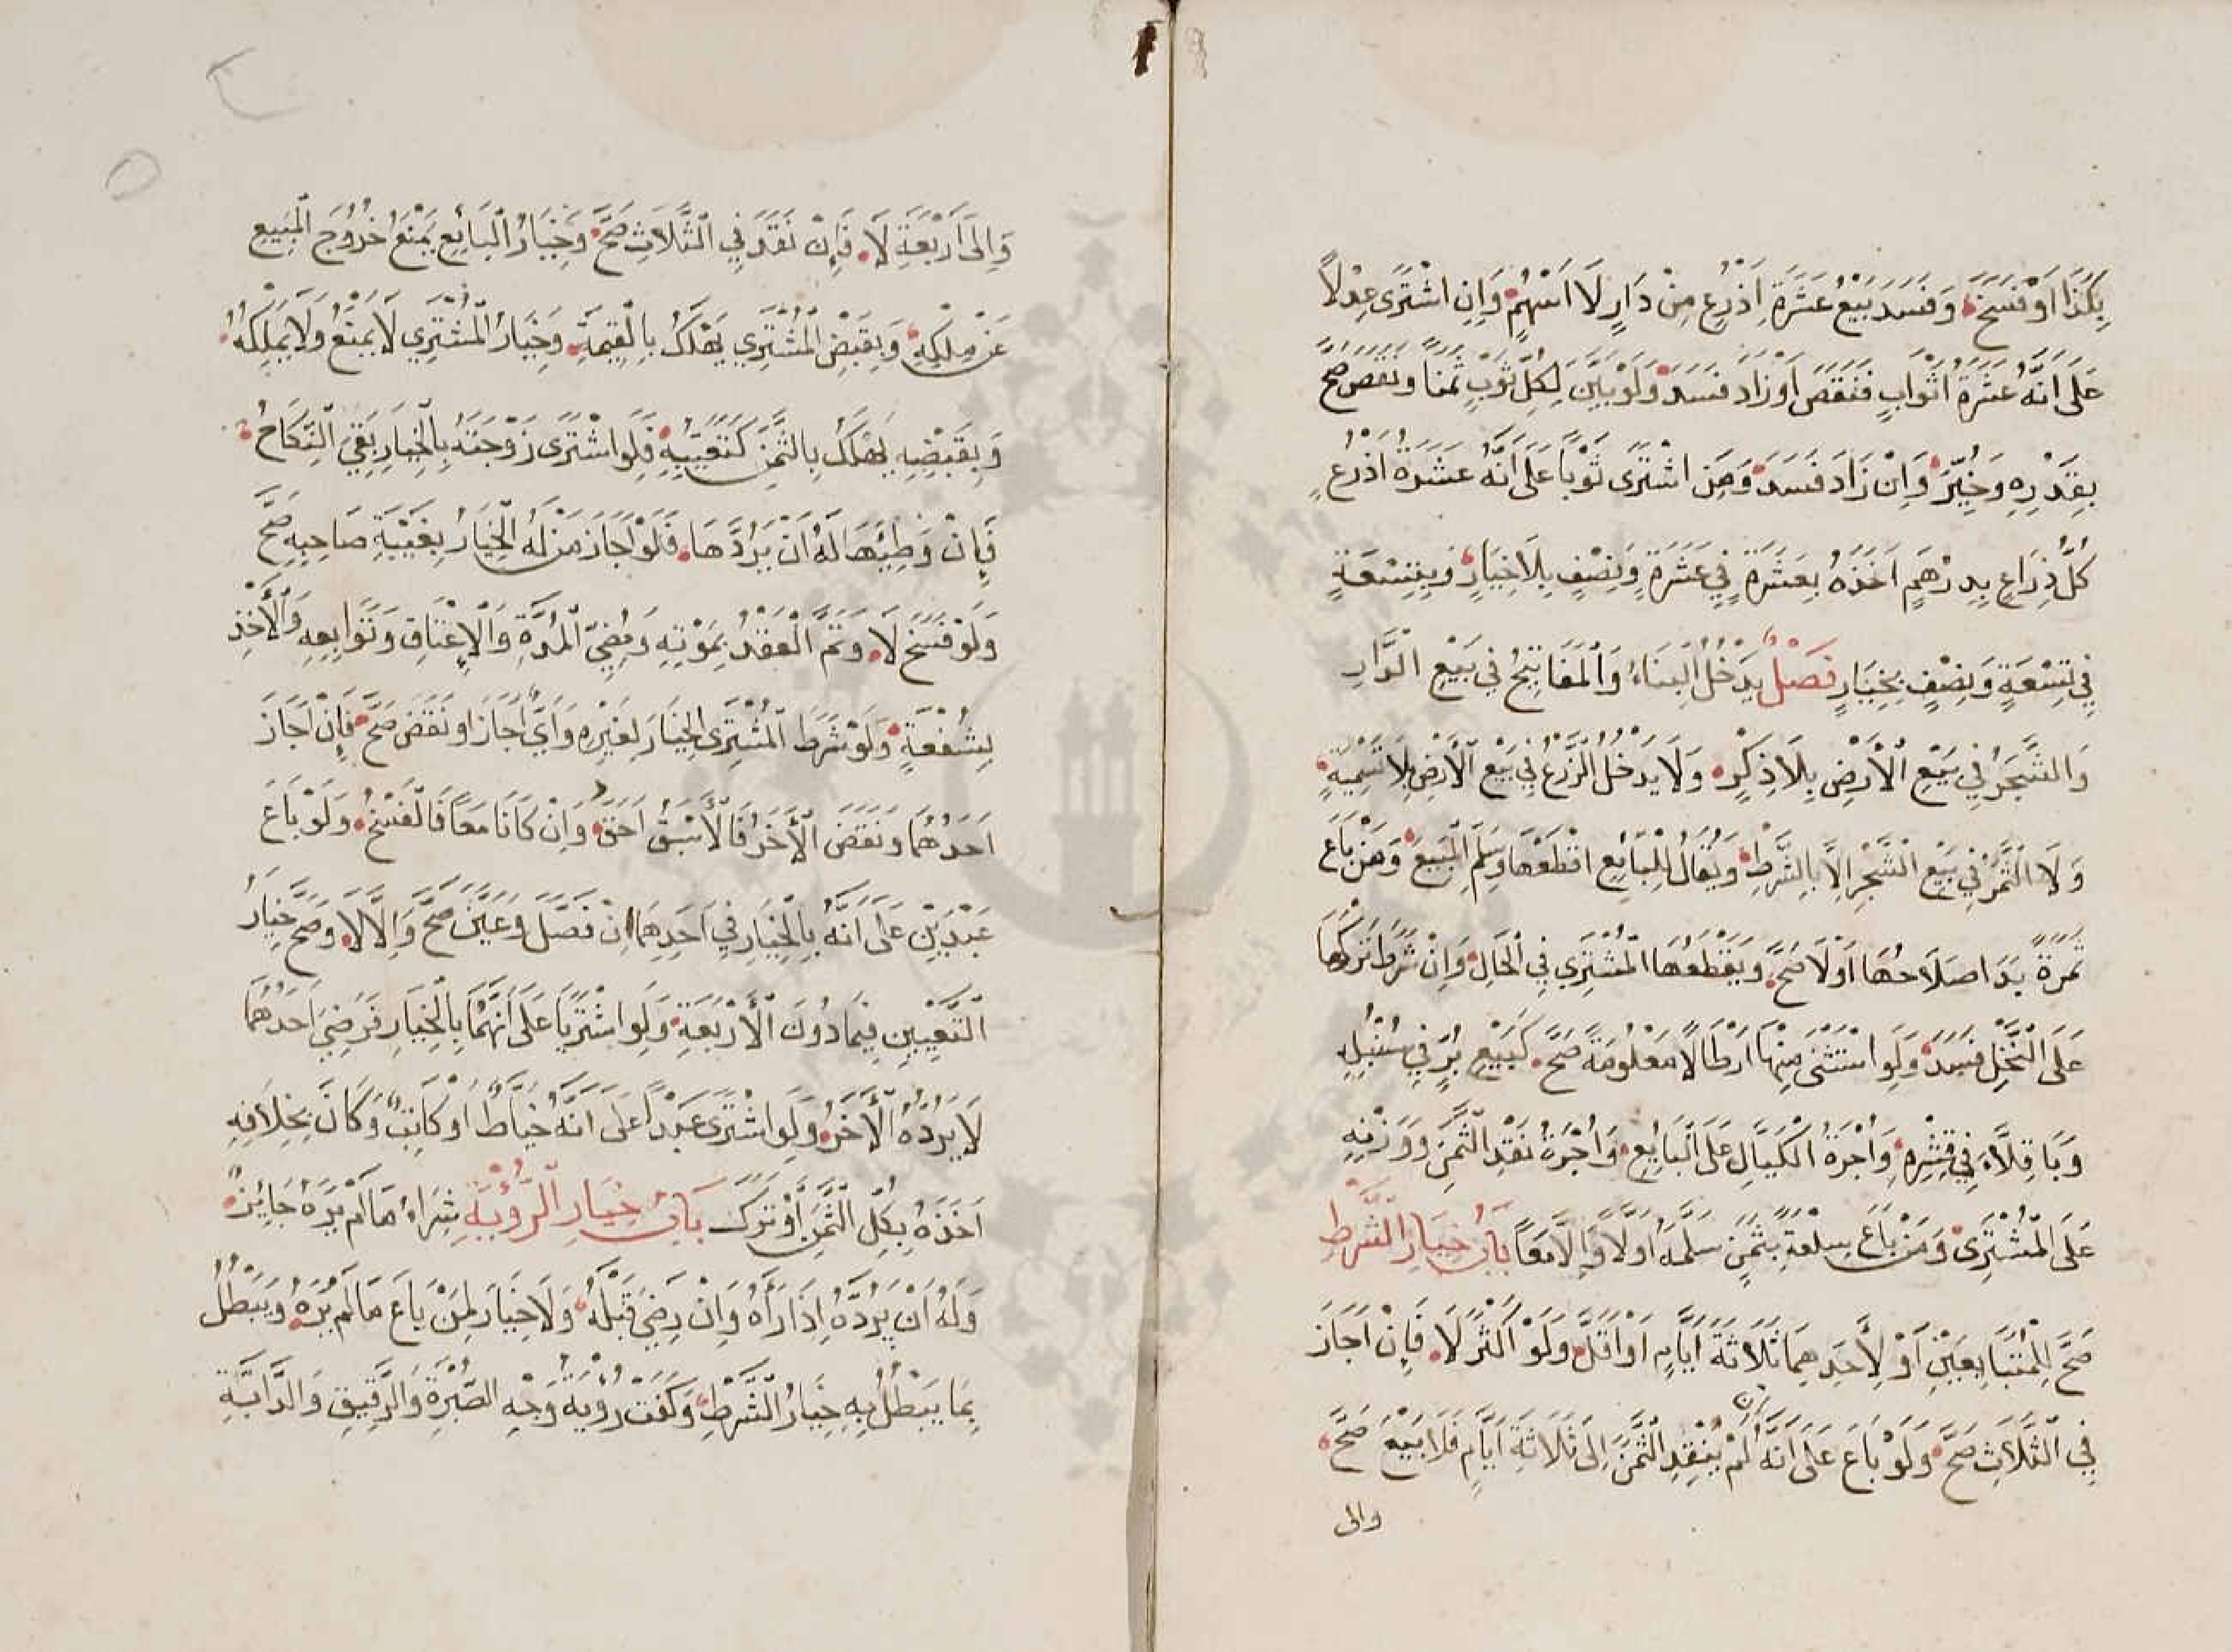 بِكَذَا اَوْ فَسَخَ وَفَسَدَ بَيْعُ عَشَرَةِ اَذْرُعٍ مِنْ دَارٍ لَا اَسْهُمٍ وَاِنِ اشْتَرَى عِدْلاً
عَلَى اَنَّهُ عَشَرَةُ اَثْوَابٍ فَنَقَصَ اَوْ زَادَ فَسَدَ وَلَوْ بَيَّنَ لِكُلِّ ثَوْبٍ ثَمَنًا وَنَقَصَ صَحَّ
بِقَدْرِهِ وَخُيِّرَ وَاِنْ زَادَ فَسَدَ وَمَنِ اشْتَرَى ثَوْبًا عَلَى اَنَّهُ عَشَرَةُ اَذْرُعٍ
كُلُّ ذِرَاعٍ بِدِرْهَمٍ اَخَذَهُ بِعَشَرَةٍ فِي عَشَرَةٍ وَنِصْفٍ بِلَا خِيَارٍ وَبِتِسْعَةٍ
فِي تِسْعَةٍ وَنِصْفٍ بِخِيَارٍ فَصْلٌ يَدْخُلُ الْبِنَاءُ وَالْمَفَاتِيحُ فِي بَيْعِ الدَّارِ
وَالشَّجَرُ فِي بَيْعِ الْاَرْضِ بِلَا ذِكْرٍ وَلَا يَدْخُلُ الزَّرْعُ فِي بَيْعِ الْاَرْضِ بِلَا تَسْمِيَةٍ
وَلَا الثَّمَرُ فِي بَيْعِ الشَّجَرِ اِلَّا بِالشَّرْطِ وَيُقَالُ لِلْبَائِعِ اقْطَعْهَا وَسَلِّمِ الْمَبِيعَ وَمَنْ بَاعَ
ثَمَرَةً بَدَا صَلَاحُهَا اَوْ لَا صَحَّ وَيَقْطَعُهَا الْمُشْتَرِي فِي الْحَالِ وَاِنْ شَرَطَ تَرْكَهَا
عَلَى النَّخْلِ فَسَدَ وَلَوِ اسْتَثْنَى مِنْهَا اَرْطَالًا مَعْلُومَةً صَحَّ كَبَيْعِ بُرٍّ فِي سُنْبُلِهِ
وَبَاقِلَّاءَ فِي قِشْرِهِ وَاُجْرَةُ الْكَيَّالِ عَلَى الْبَائِعِ وَاُجْرَةُ نَقْدِ الثَّمَنِ وَوَزْنِهِ
عَلَى الْمُشْتَرِي وَمَنْ بَاعَ سِلْعَةً بِثَمَنٍ سَلَّمَهُ اَوَّلًا وَاِلَّا مَعًا بَابُ خِيَارِ الشَّرْطِ
صَحَّ لِلْمُتَبَايِعَيْنِ اَوْ لِأَحَدِهِمَا ثَلَاثَةَ اَيَّامٍ اَوْ اَقَلَّ وَلَوْ اَكْثَرَ لَا فَاِنْ اَجَازَ
فِي الثَّلَاثِ صَحَّ وَلَوْ بَاعَ عَلَى اَنَّهُ اِنْ لَمْ يَنْقُدِ الثَّمَنَ اِلَى ثَلَاثَةِ اَيَّامٍ فَلَا بَيْعَ صَحَّ
والى
وَاِلَى اَرْبَعَةٍ لَا فَاِنْ نَقَدَ فِي الثَّلَاثِ صَحَّ وَخِيَارُ الْبَائِعِ يَمْنَعُ خُرُوجَ الْمَبِيعِ
عَنْ مِلْكِهِ وَبِقَبْضِ الْمُشْتَرِي يَهْلَكُ بِالْقِيمَةِ وَخِيَارُ الْمُشْتَرِي لَا يَمْنَعُ وَلَا يَمْلِكُهُ
وَبِقَبْضِهِ يَهْلَكُ بِالثَّمَنِ كَتَعَيُّبِهِ فَلَوِ اشْتَرَى زَوْجَتَهُ بِالْخِيَارِ بَقِيَ النِّكَاحُ
فَاِنْ وَطِئَهَا لَهُ اَنْ يَرُدَّهَا فَلَوْ اَجَازَ مَنْ لَهُ الْخِيَارُ بِغَيْبَةِ صَاحِبِهِ صَحَّ
وَلَوْ فَسَخَ لَا وَتَمَّ الْعَقْدُ بِمَوْتِهِ وَمُضِيِّ الْمُدَّةِ وَالْاِعْتَاقِ وَتَوَابِعِهِ وَالْأَخْذِ
بِشُفْعَةٍ وَلَوْ شَرَطَ الْمُشْتَرِي الْخِيَارَ لِغَيْرِهِ وَاَيٌّ اَجَازَ اَوْ نَقَضَ صَحَّ فَاِنْ اَجَازَ
اَحَدُهُمَا وَنَقَضَ الْأَخَرُ فَالْأَسْبَقُ اَحَقُّ وَاِنْ كَانَا مَعًا فَالْفَسْخُ وَلَوْ بَاعَ
عَبْدَيْنِ عَلَى اَنَّهُ بِالْخِيَارِ فِي اَحَدِهِمَا اِنْ فَصَّلَ وَعَيَّنَ صَحَّ وَاِلَّا لَا وَصَحَّ خِيَارُ
التَّعْيِينِ فِيمَا دُونَ الْأَرْبَعَةِ وَلَوِ اشْتَرَيَا عَلَى اَنَّهُمَا بِالْخِيَارِ فَرَضِيَ اَحَدُهُمَا
لَا يَرُدُّهُ الْأَخَرُ وَلَوِ اشْتَرَى عَبْدًا عَلَى اَنَّهُ خَيَّاطٌ اَوْ كَاتِبٌ وَكَانَ بِخِلَافِهِ
اَخَذَهُ بِكُلِّ الثَّمَنِ اَوْ تَرَكَ بَابُ خِيَارِ الرُّؤْيَةِ شِرَاءُ مَا لَمْ يَرَهُ جَائِزٌ
وَلَهُ اَنْ يَرُدَّهُ اِذَا رَأَهُ وَاِنْ رَضِيَ قَبْلَهُ وَلَا خِيَارَ لِمَنْ بَاعَ مَا لَمْ يَرَهُ وَيَبْطُلُ
بِمَا يَبْطُلُ بِهِ خِيَارُ الشَّرْطِ وَكَفَتْ رُؤْيَةُ وَجْهِ الصُّبْرَةِ وَالرَّقِيقِ وَالدَّابَّةِ